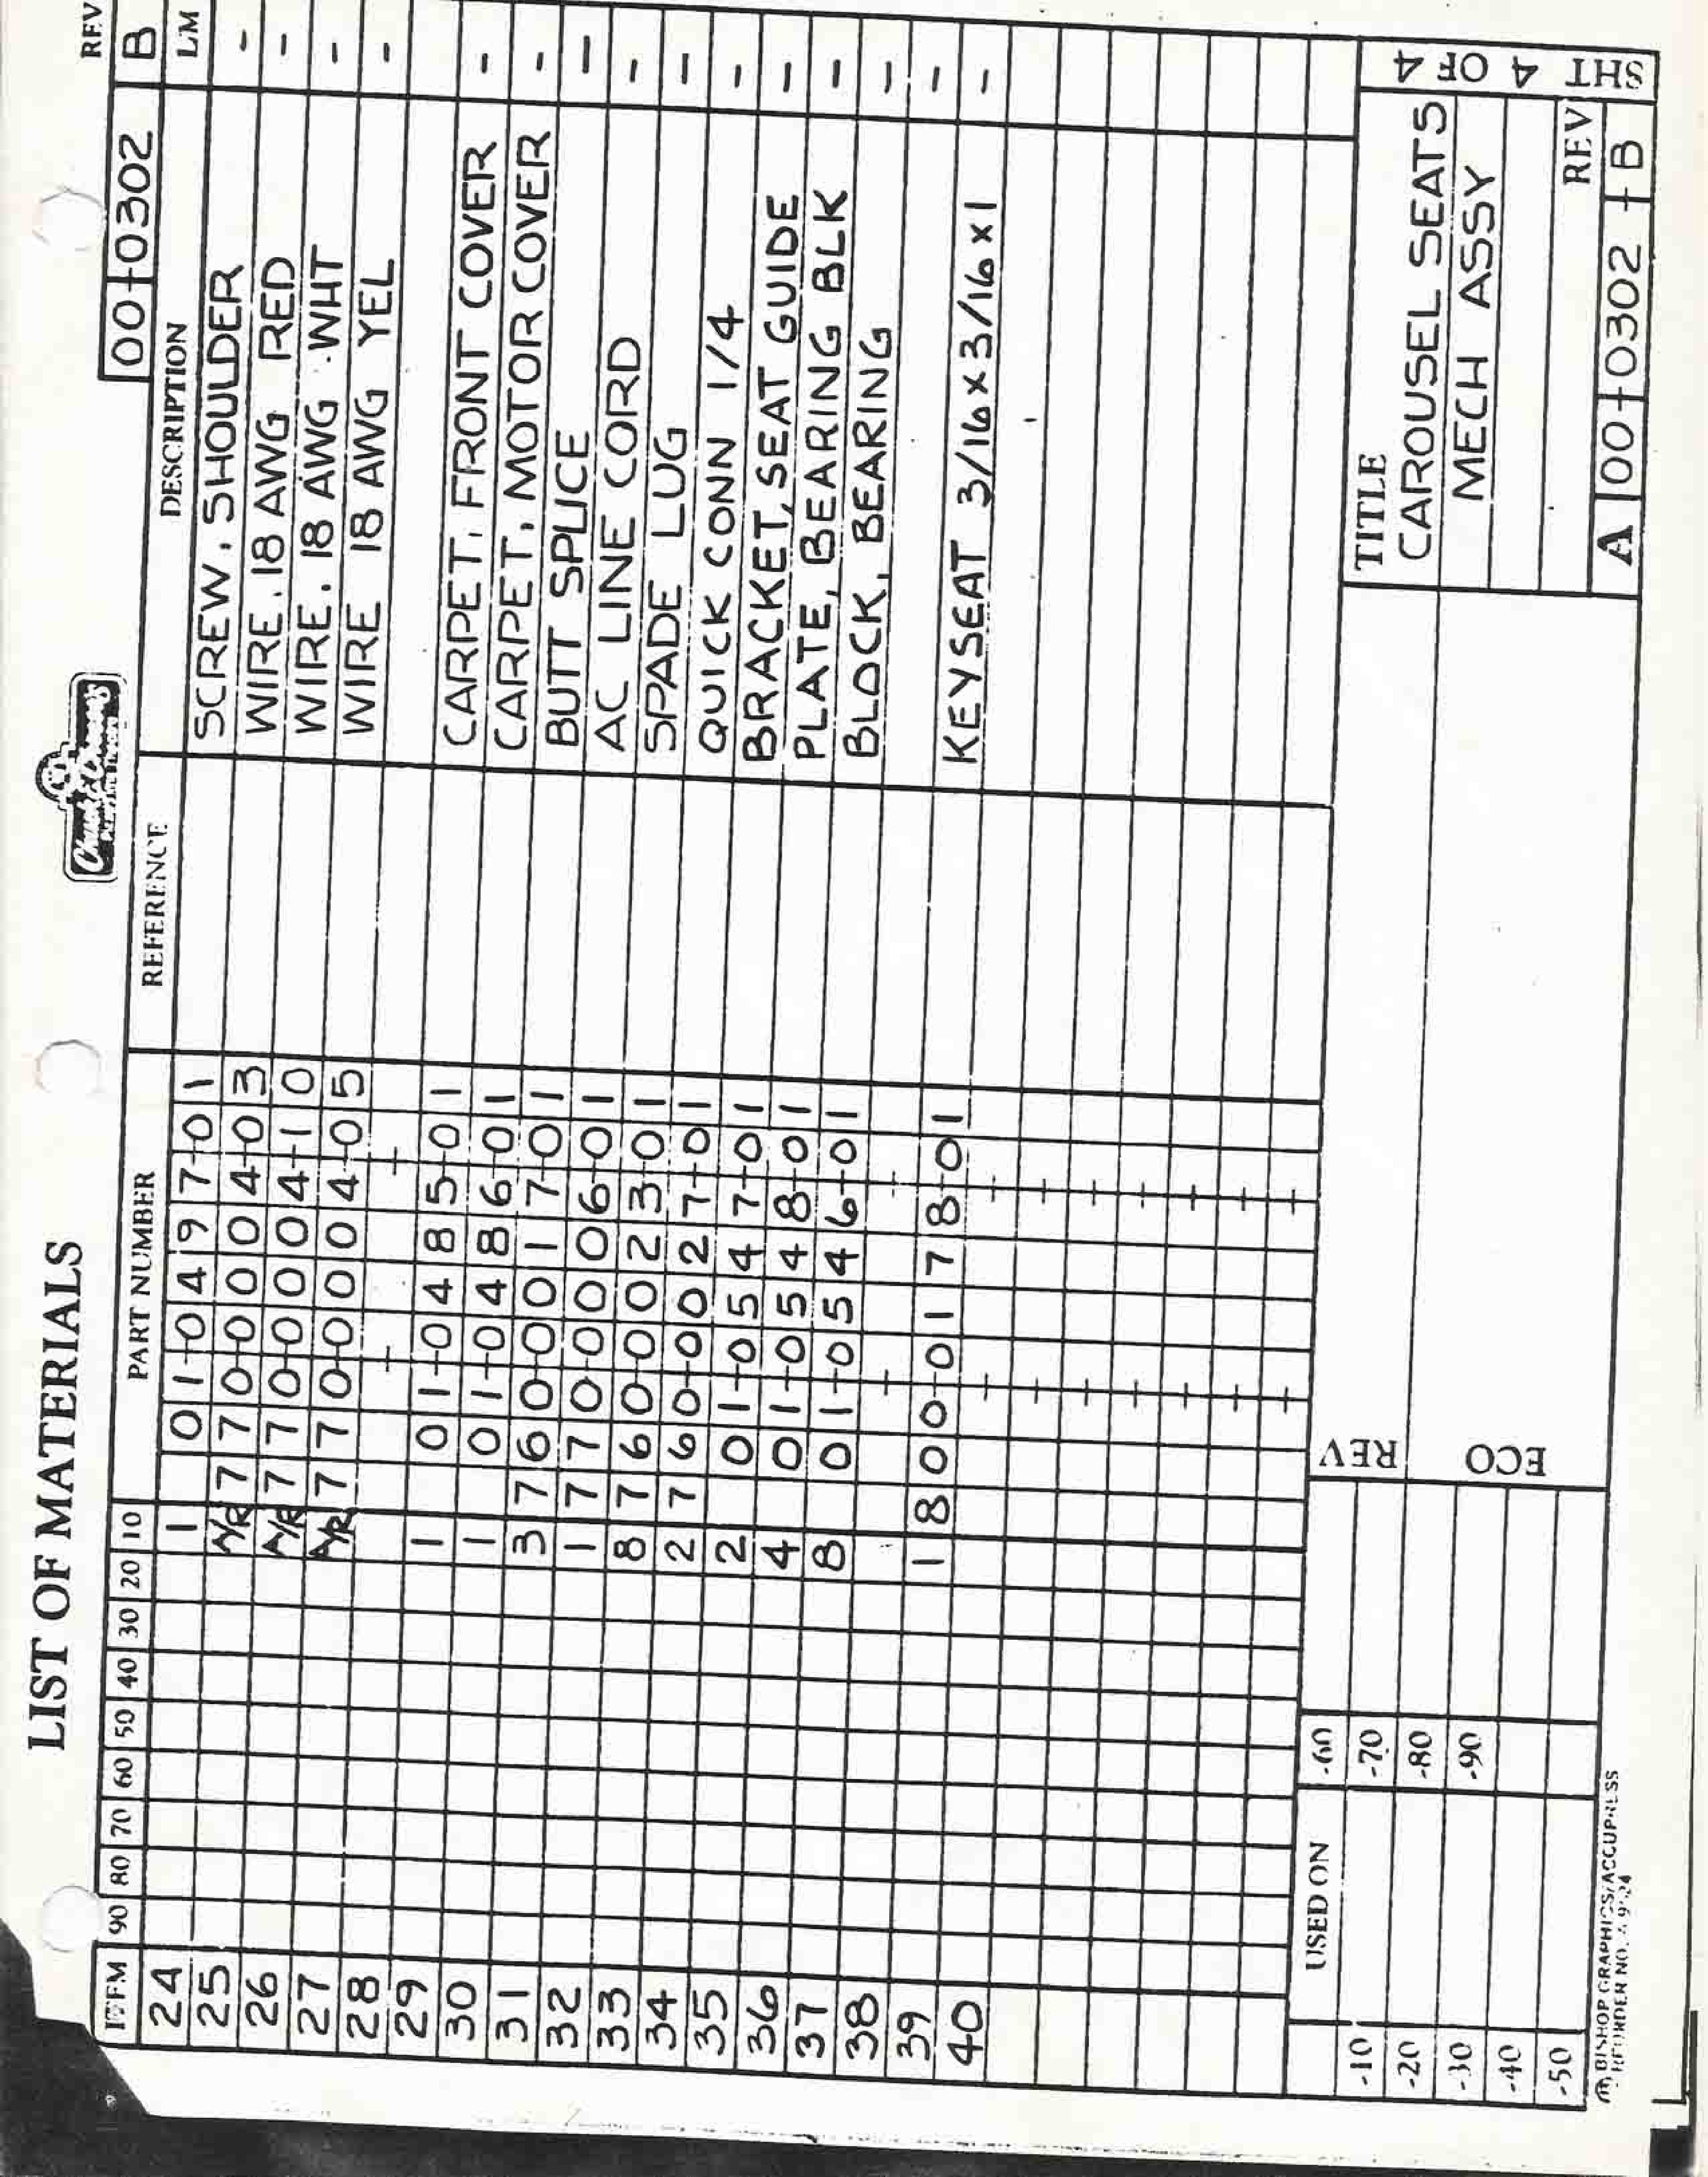 LIST OF MATERIALS
REV
00-0302 B
ITEM 90 80 70 60 50 40 30 20 10 PART NUMBER REFERENCE DESCRIPTION LM
24 1 01-0497-01 SCREW, SHOULDER -
25 A/R 770-0004-03 WIRE, 18 AWG RED -
26 A/R 770-0004-10 WIRE, 18 AWG WHT -
27 A/R 770-0004-05 WIRE 18 AWG YEL -
28
29 1 01-0485-01 CARPET, FRONT COVER -
30 1 01-0486-01 CARPET, MOTOR COVER -
31 3 760-0017-01 BUTT SPLICE -
32 1 770-0006-01 AC LINE CORD -
33 8 760-0023-01 SPADE LUG -
34 2 760-0027-01 QUICK CONN 1/4 -
35 2 01-0547-01 BRACKET, SEAT GUIDE -
36 4 01-0548-01 PLATE, BEARING BLK -
37 8 01-0546-01 BLOCK, BEARING -
38 -
39 1 800-0178-01 KEYSEAT 3/16 x 3/16 x 1 -
40
USED ON -60
-10 -70
-20 -80
-30 -90
-40
-50
REV
ECO
TITLE
CAROUSEL SEATS
MECH ASSY
REV
A 00-0302 B
SHT 4 OF 4
BISHOP GRAPHICS/ACCUPRESS